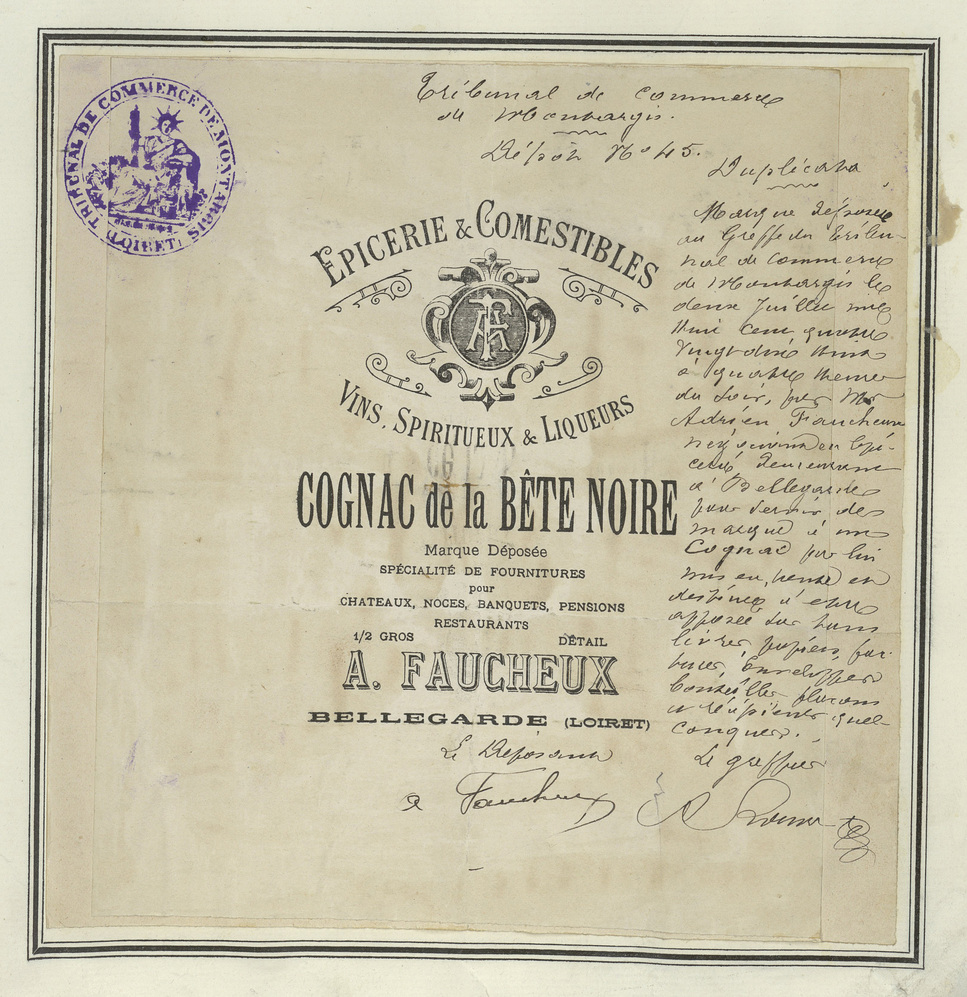 TRIBUNAL DE COMMERCE DE MONTARGIS
(LOIRET)
Tribunal de Commerce
de Montargis.
Dépôt No 45.
Duplicata
EPICERIE & COMESTIBLES
AF
VINS, SPIRITUEUX & LIQUEURS
COGNAC de la BÊTE NOIRE
Marque Déposée
SPÉCIALITÉ DE FOURNITURES
pour
CHATEAUX, NOCES, BANQUETS, PENSIONS
RESTAURANTS
1/2 GROS DÉTAIL
A. FAUCHEUX
BELLEGARDE (LOIRET)
Marque déposée
au Greffe du Tribu-
nal de Commerce
de Montargis le
deux Juillet mil
huit cent quatre
vingt dix huit
à quatre heures
du soir, par Mr
Adrien Faucheux
négociant en Epi-
cerie demeurant
à Bellegarde
pour servir de
marque à un
Cognac par lui
mis en vente et
destinée à être
apposée sur tous
livres, papiers, fac-
tures, enveloppes
bouteilles flacons
et récipients quel
conques.
Le Déposant
Faucheux
Le greffier